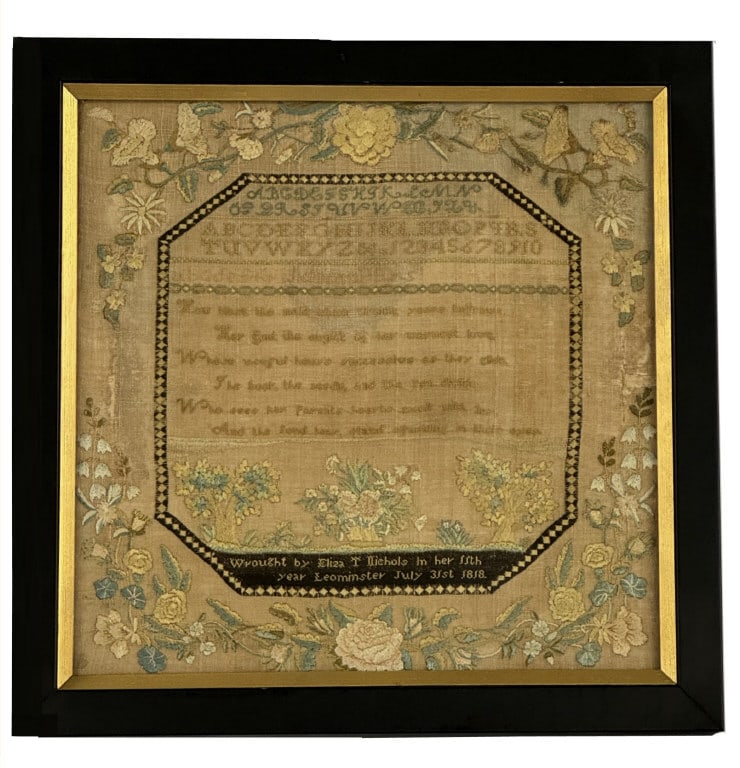 ABCDEFGHIJKLMN
OPQRSTUVWXYZ&
ABCDEFGHIJKLMNOPQRS
TUVWXYZ& 12345678910
How blest the maid whom circling years improve
Her God the object of her warmest love
Whose useful hours successive as they glide
The book the needle and the pen divide
Who sees her parents hearts exult with joy
And the fond tear stand in their eyes
Wrought by Eliza T Nichols in her 11th
year Leominster July 31st 1818.